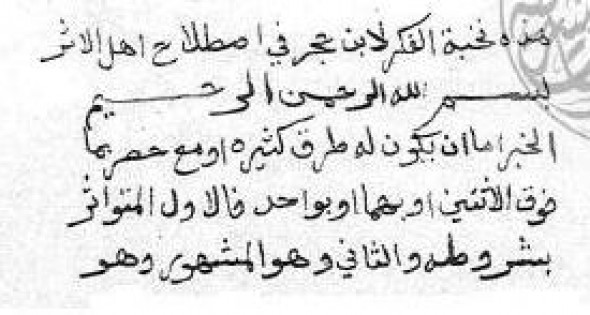 هذه نخبة الفكر لابن حجر في اصطلاح اهل الاثر
بسم الله الرحمن الرحيم
الخبر اما ان يكون له طرق كثيره او مع حصر بما
فوق الاثنين او بهما او بواحد فالاول المتواتر
بشروطه والثاني وهو المشهور وهو